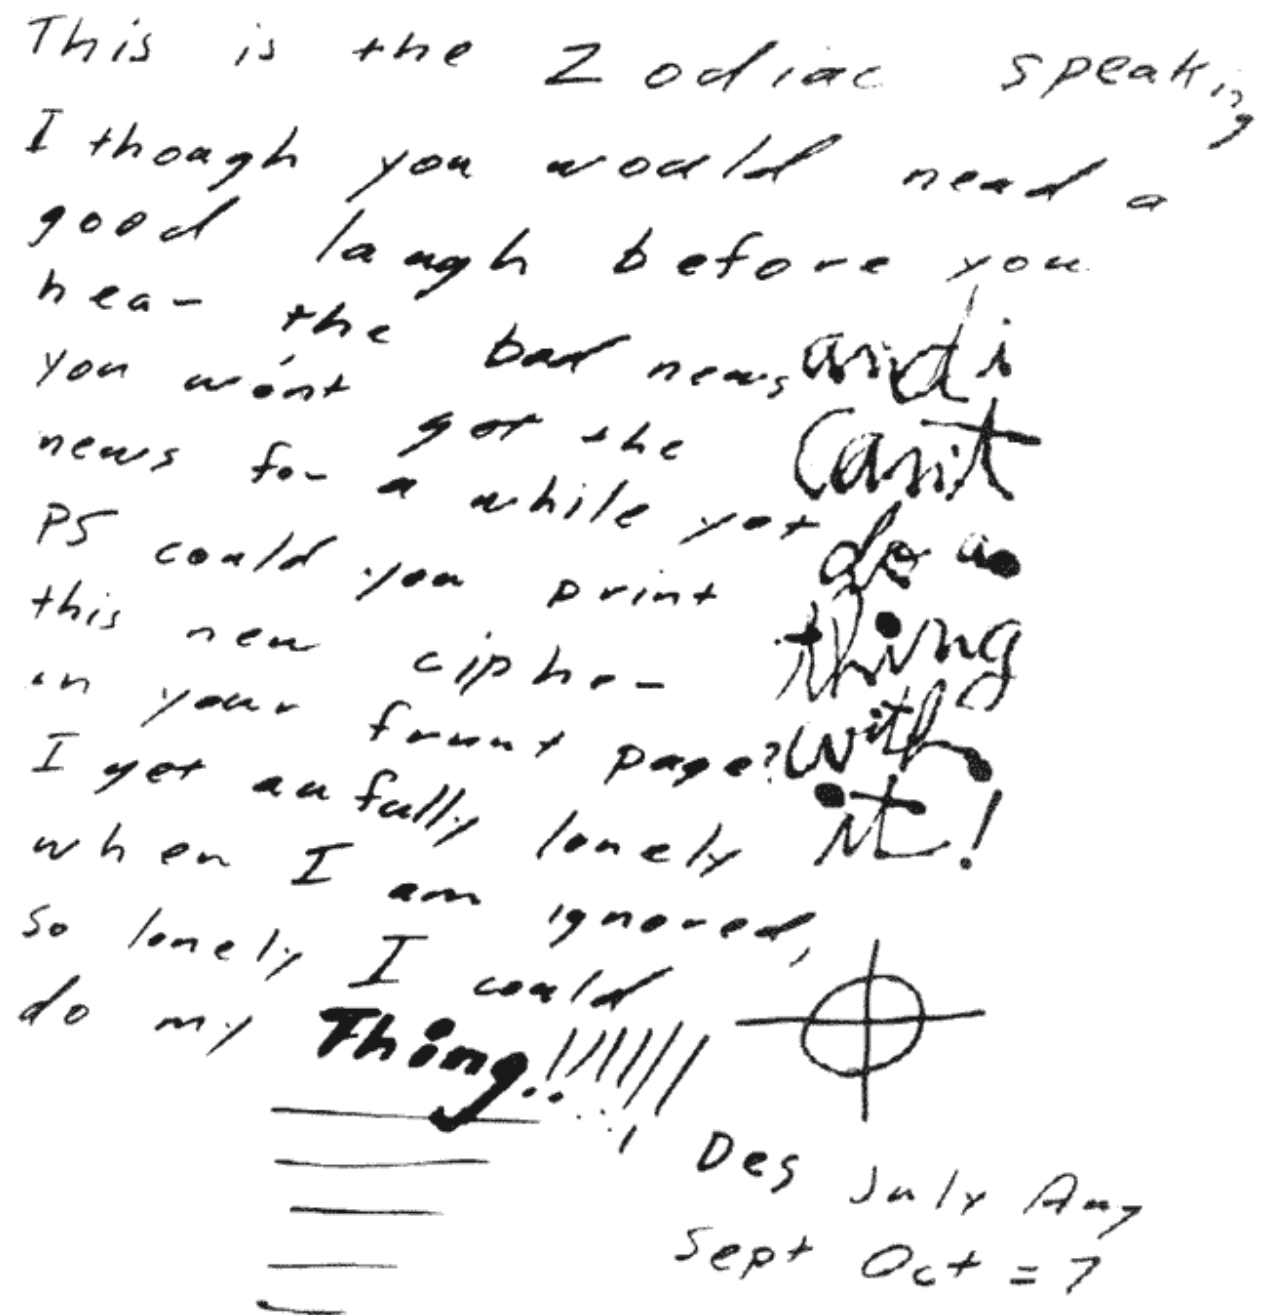 This is the Zodiac speaking
I though you would need a
good laugh before you
hear the bad news
you won't get the
news for a while yet
PS could you print
this new cipher
in your frunt page?
I get aufully lonely
when I am ignored,
so lonely I could
do my Thing..!!!!!!
and i
can't
do a
thing
with
it!
Des July Aug
Sept Oct = 7